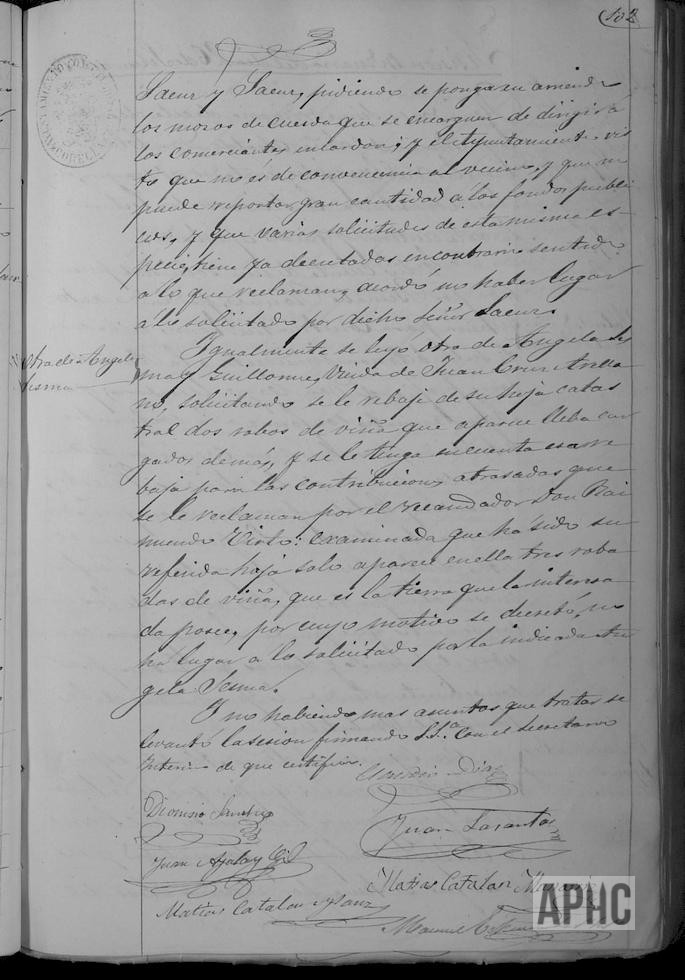 102
Saenz y Saenz, pidiendo se ponga en arriendo
los mozos de cuerda que se encarguen de dirigir á
los comerciantes en cordon; y el Ayuntamiento vis-
to que no es de conveniencia al vecino, y que no
puede reportar gran cantidad á los fondos publi-
cos, y que varias solicitudes de esta misma es-
pecie, tiene ya decretadas en contrario sentido
á lo que reclaman, acordó no haber lugar
á lo solicitado por dicho Señor Saenz.
Otra de Angela
Sesma
Igualmente se leyó otra de Angela Ses-
ma y Guillorme, Viuda de Juan Cruz Arella-
no, solicitando se le rebaje de su hoja catas-
tral dos robos de viña que aparece lleba car-
gados demás, y se le tenga en cuenta esa re-
baja para las contribuciones atrasadas que
se le reclaman por el recaudador Don Rai-
mundo Virto: examinada que há sido su
referida hoja solo aparece en ella tres roba-
das de viña, que es la tierra que la interesa-
da posee, por cuyo motivo se decretó, no
ha lugar a lo solicitado por la indicada An-
gela Sesma.
Y no habiendo mas asuntos que tratar se
levantó la sesion firmando S.Sª. con el secretario
interino de que certifico.
Dionisio Sanchez
Juan Ayala y Gil
Juan Lasantas
Matias Catalan
Matias Catalan y Sanz
Manuel
APHC